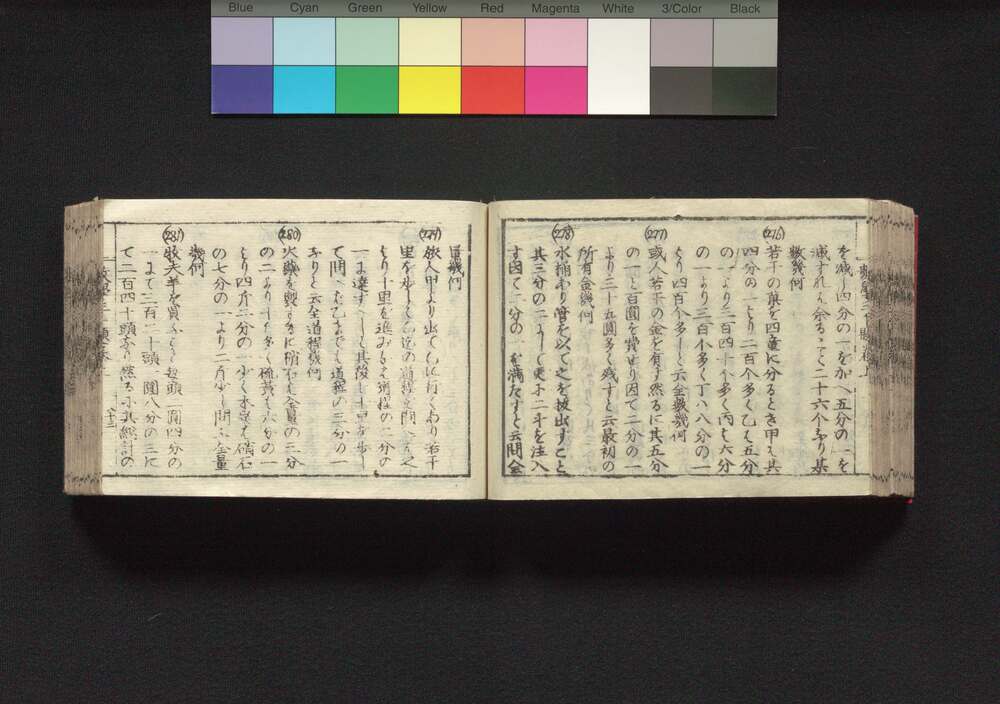 Blue Cyan Green Yellow Red Magenta White 3/Color Black
を減し四分の一を加へ五分の一を
減すれは余ること二十六个なり某
数幾何
(276)
若干の菓を四童に分るとき甲は其
四分の一より二百个多く乙は五分
の一より三百四十个多く丙は六分
の一より三百个多く丁は八分の一
より四百个多しと云全数幾何
(277)
或人若干の金を有す然るに其五分
の一と百圓を費せり因て二分の一
より三十五圓多く残すと云最初の
所有金幾何
(278)
水桶あり管を以て之を抜出すこと
其三分の二にして更に二斗を注入
す因て二分の一を満たすと云問全
量幾何
(279)
旅人甲より出て乙に行くあり若干
里を歩して乙迄の道程を問へは之
より十里を進みなは道程の二分の
一に達すへしと其後
て問へは乙までは道程の三分の一
なりと云全道程幾何
(280)
火薬を製するに硝石は全量の三分
の二より十斤多く硫黄は六分の一
より四斤二分の一少く木炭は硝石
の七分の一より二斤少し問ふ全量
幾何
(281)
牧夫羊を買ふとき毎頭一圓四分の
一にて三百二十頭一圓八分の三に
て二百四十頭なり然るに其総計の